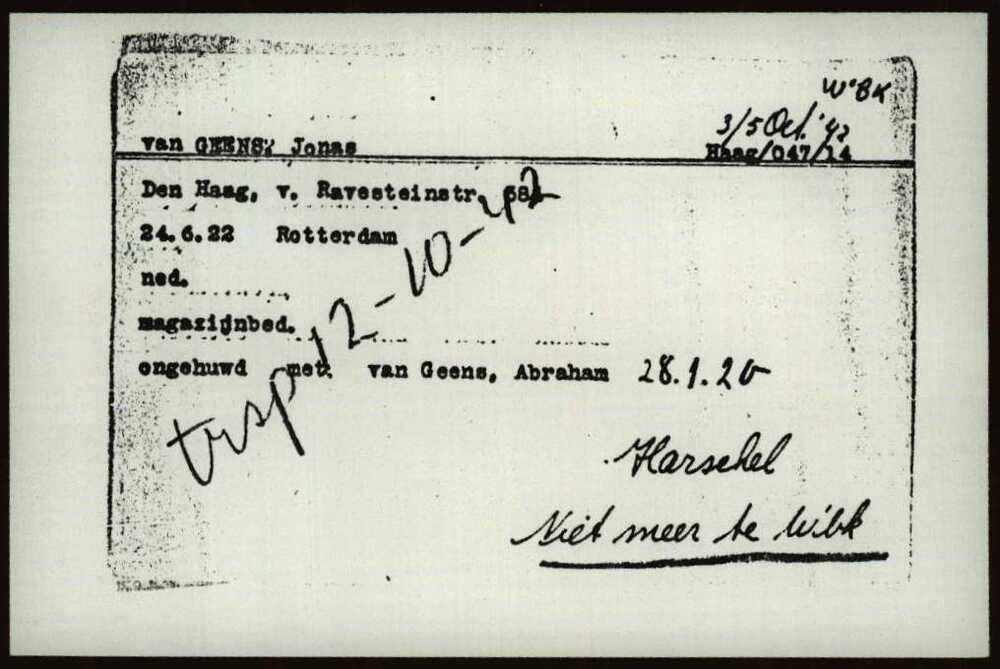 W'BK
3/5 Oct. '42
van GEENS, Jonas
Haag/047/14
Den Haag, v. Ravesteinstr.
24.6.22 Rotterdam
ned.
magazijnbed.
ongehuwd met van Geens, Abraham 28.1.20
trsp 12-10-42
Harschel
Niet meer te W'bk